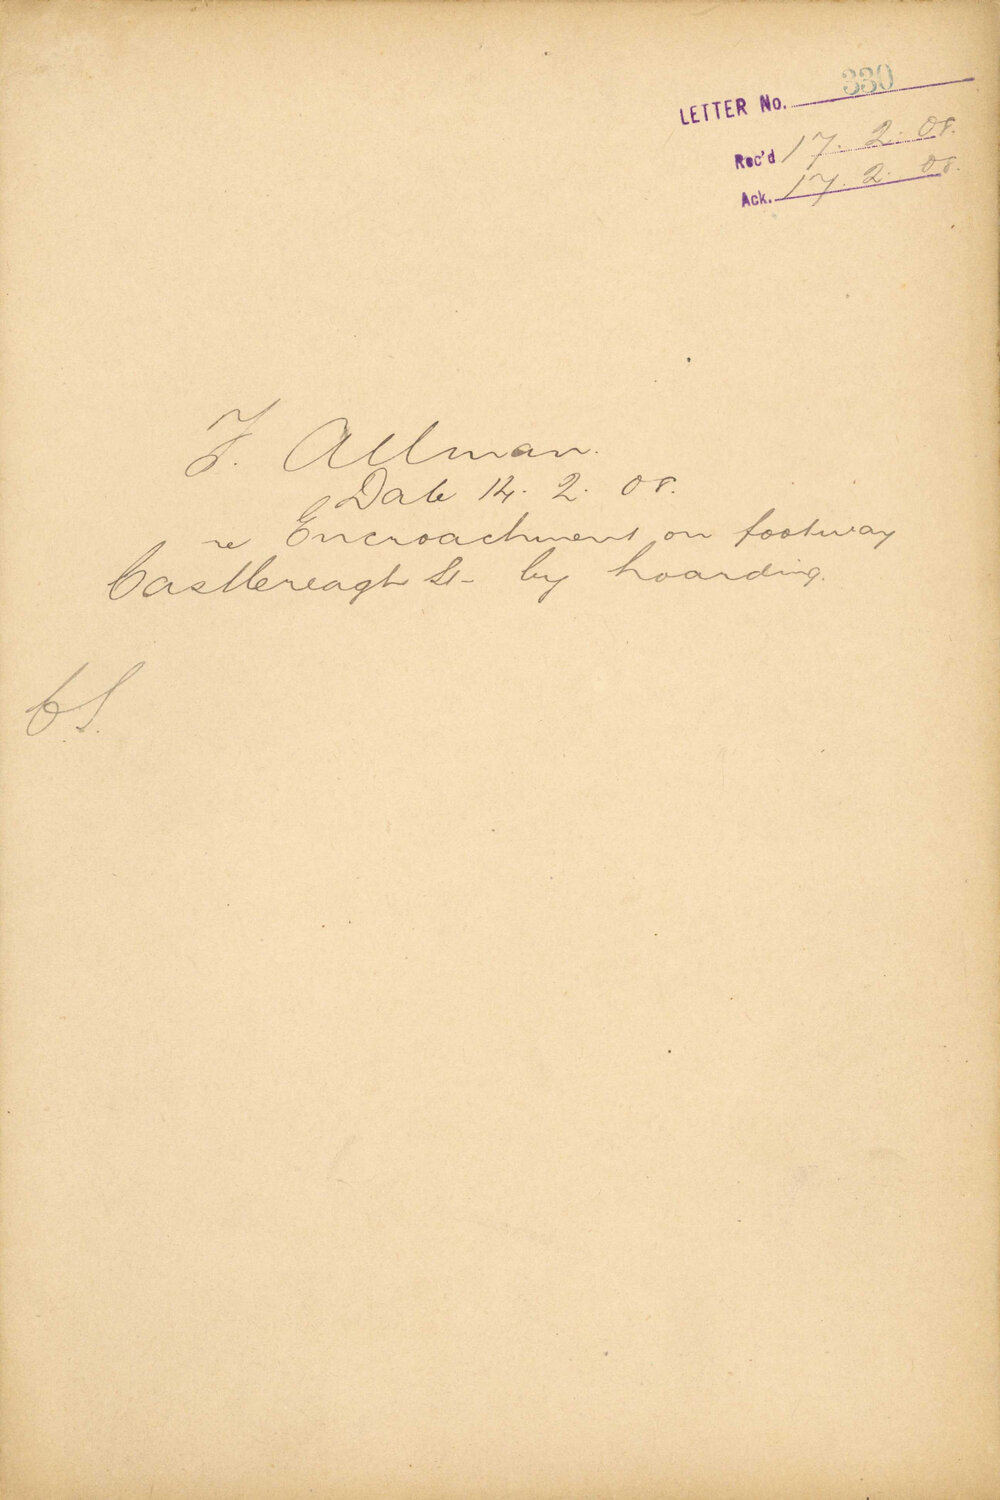 LETTER No. 330
Rec'd 17. 2. 08.
Ack. 17. 2. 08.
F. Allman.
Date 14. 2. 08.
re Encroachment on footway
Castlereagh St by hoarding.
CS.